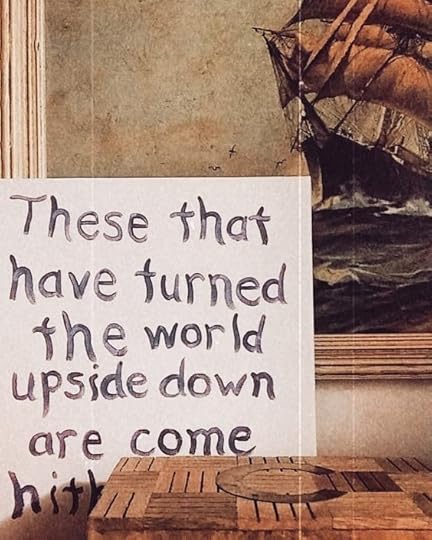 These that
have turned
the world
upside down
are come
hith